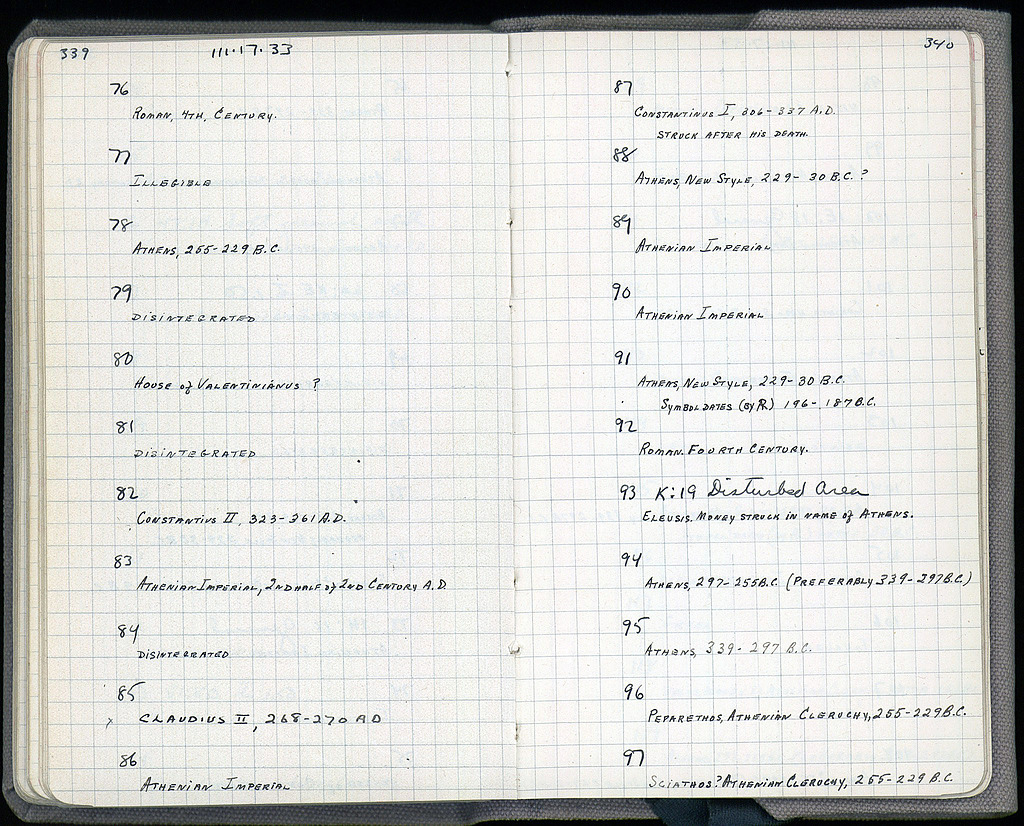 339 111·17·33
76
ROMAN, 4TH. CENTURY.
77
ILLEGIBLE
78
ATHENS, 255-229 B.C.
79
DISINTEGRATED
80
HOUSE of VALENTINIANUS ?
81
DISINTEGRATED
82
CONSTANTIUS II, 323-361 A.D.
83
ATHENIAN IMPERIAL, 2ND HALF of 2ND CENTURY A.D.
84
DISINTEGRATED
85
x CLAUDIUS II, 268-270 AD
86
ATHENIAN IMPERIAL
340
87
CONSTANTINUS I, 306-337 A.D.
STRUCK AFTER HIS DEATH.
88
ATHENS, NEW STYLE, 229-30 B.C. ?
89
ATHENIAN IMPERIAL
90
ATHENIAN IMPERIAL
91
ATHENS, NEW STYLE, 229-30 B.C.
SYMBOL DATES (BY) 196-187 B.C.
92
ROMAN. FOURTH CENTURY.
93 K:19 Disturbed Area
ELEUSIS. MONEY STRUCK IN NAME of ATHENS.
94
ATHENS, 297-255 B.C. (PREFERABLY 339-297 B.C.)
95
ATHENS, 339-297 B.C.
96
PEPARETHOS, ATHENIAN CLERUCHY, 255-229 B.C.
97
SCIATHOS? ATHENIAN CLERUCHY, 255-229 B.C.